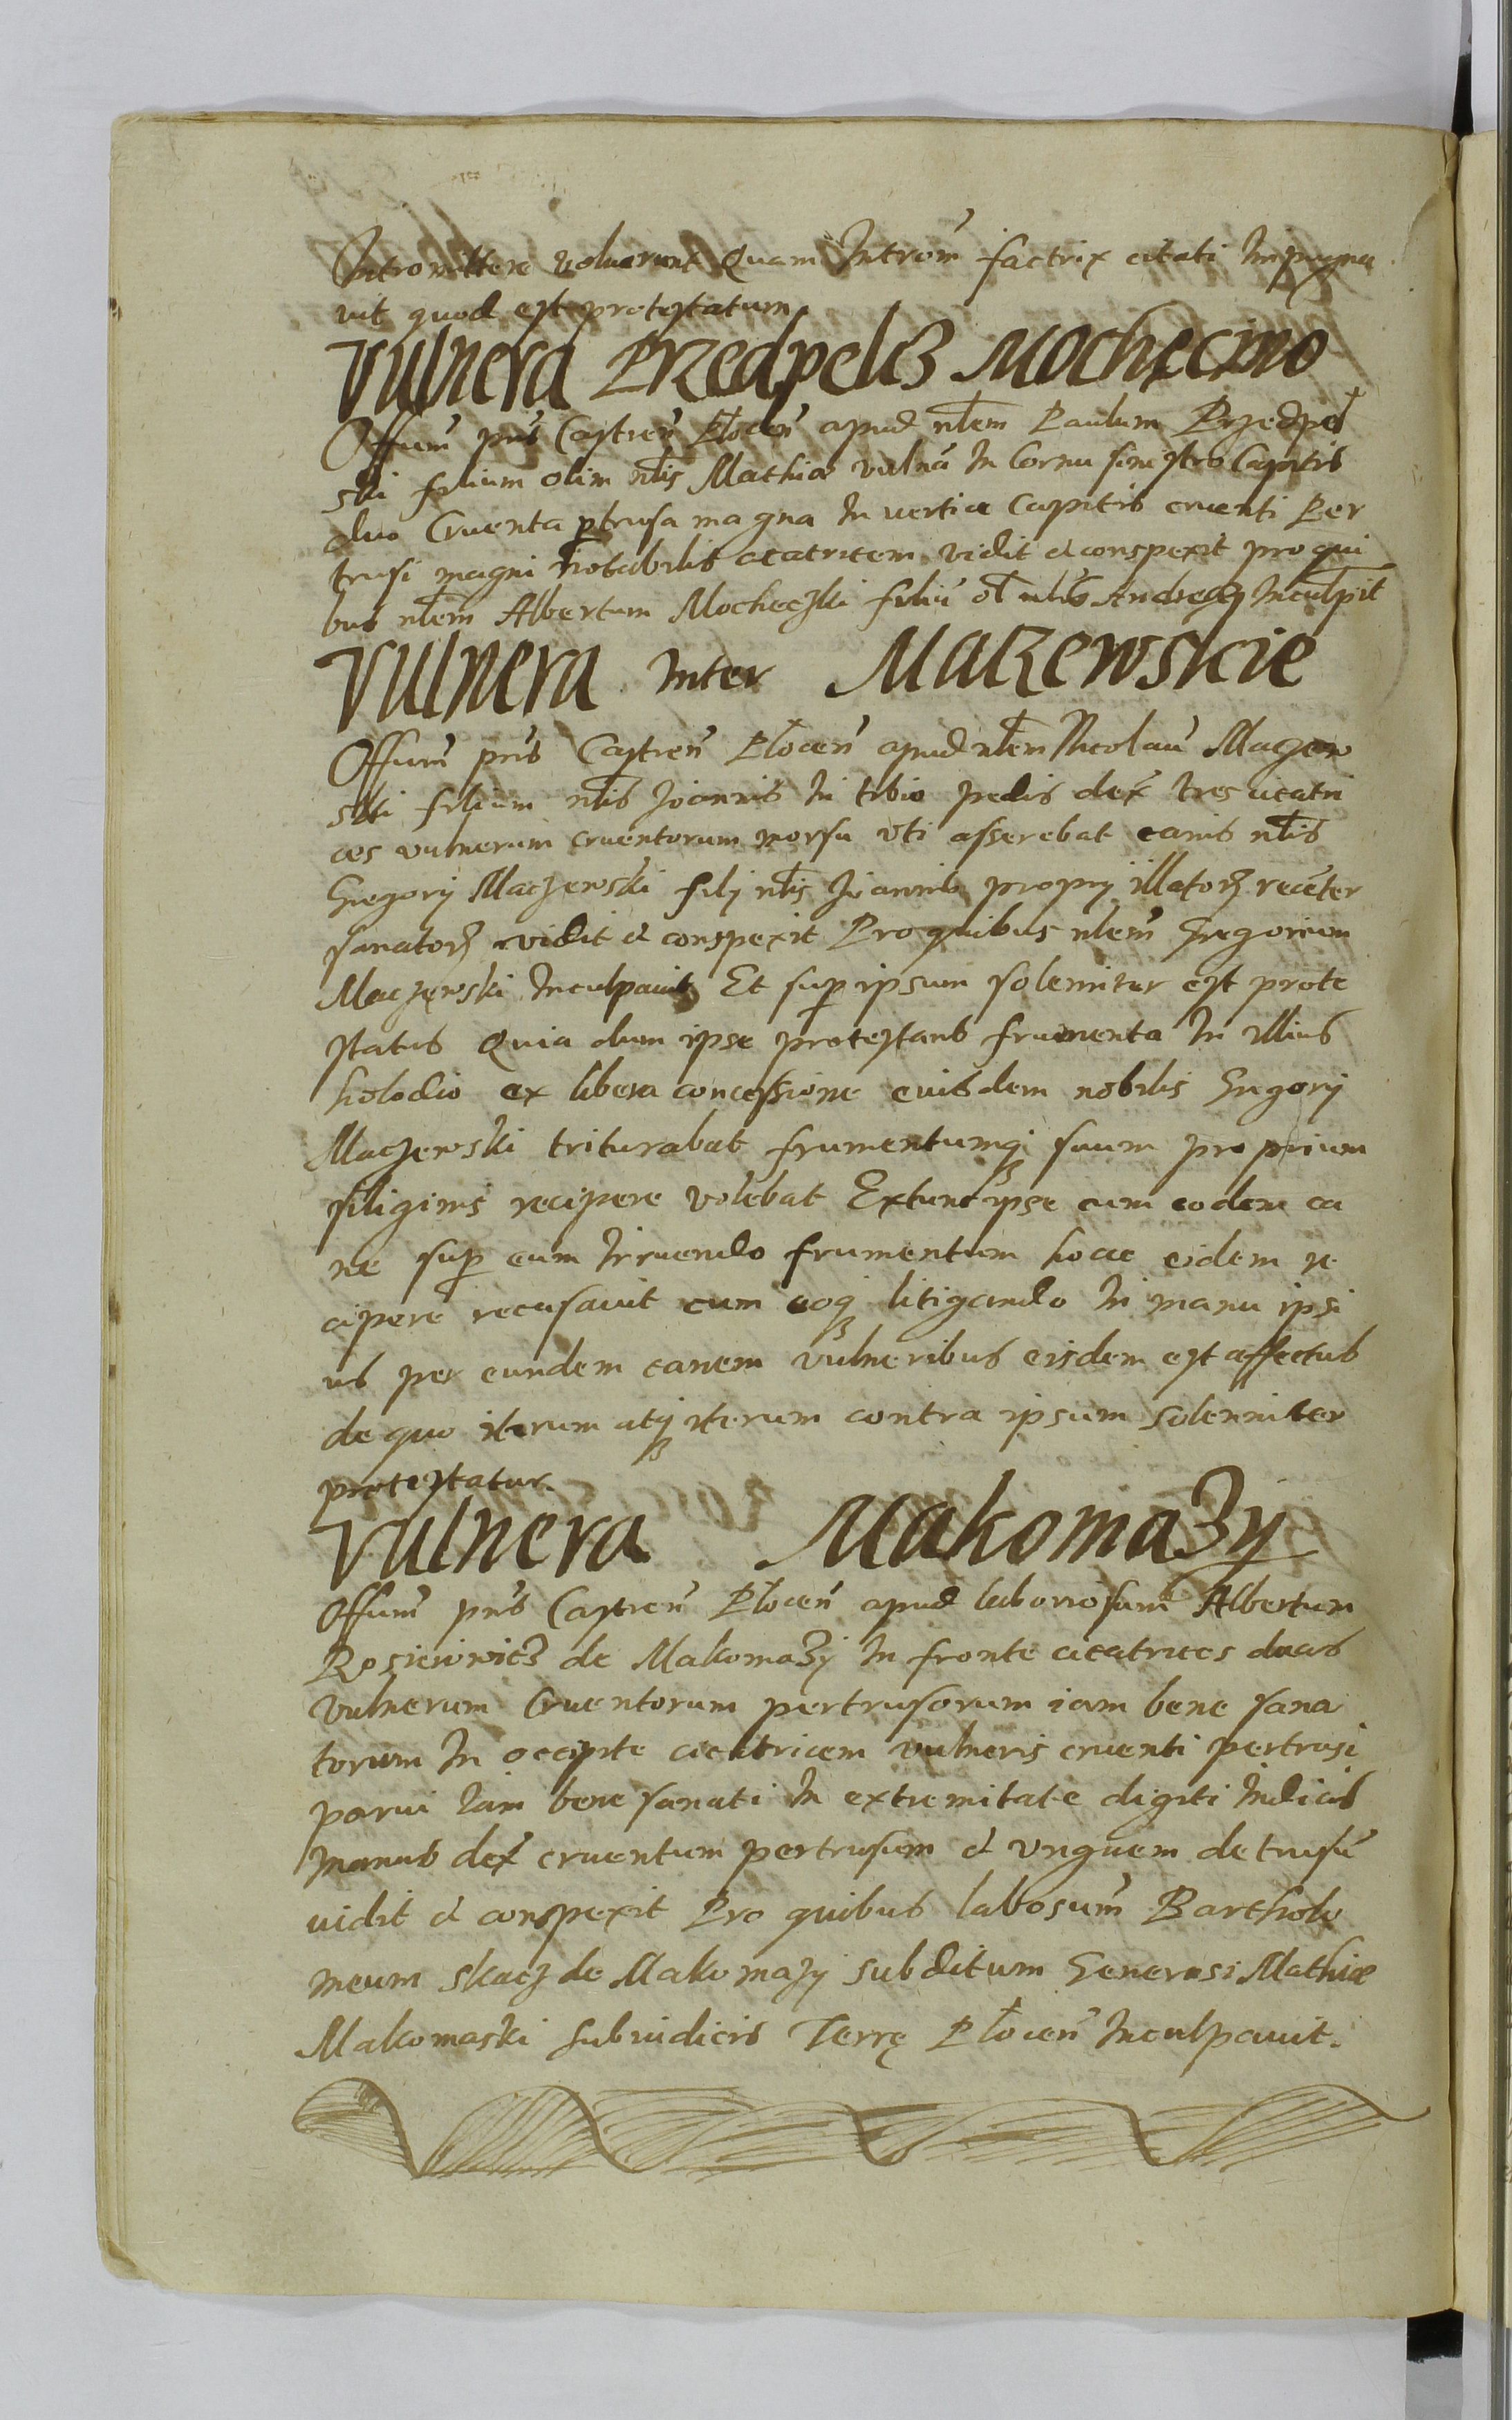 Intromittere voluerunt Quam Introm̃ factrix citati Impugna
vit quod est protestatum
Vulnera PRzedpelß Mochecino
Offium̃ pñs Castren̄ Płocen̄ apud nłem Paulum Przedpeł
ski filium olim nłis Mathiæ vulnā In Cornu sinistro Capitis
duo Cruenta ptrusa magna In vertice Capitis cruenti Per
trusi magni notabilis cicatricem vidit et conspexit pro qui
bus nłem Albertum Mocheczki filiū oł nłis Andreæ Inculpit
Vulnera inter MaRzewskie
Offium̃ pñs Castren̄ Płocen̄ apud nłem Nicolaū Maczew
ski filium nłis Joannis In tibio pedis dex̃ tres cicatri
ces vulnerum cruentorum morsu uti asserebat canis nłis
Gregorij Maczewski filij nłis Joannis proprij illatorꝝ recēter
sanatorꝝ vidit et conspexit Pro quibus nłem Gregorium
Maczewski Inculpavit Et sup ipsum solemniter est prote
status Quia dum ipse protestans frumenta In illius
holodio ex libera concessione eiusdem nobilis Gregorij
Maczewski triturabat frumentumqꝫ suum proprium
siliginis recipere volebat Extunc ipse cum eodem ca
ne sup eum Irruendo frumentum hocce eidem re
cipere recusavit cum eoqꝫ litigando In manu ipsi
us per eundem canem vulneribus eisdem est affectus
de quo iterum atqꝫ iterum contra ipsum solemniter
protestatur.
Vulnera Makomaʒy
Offium̃ pñs Castren̄ Płocen̄ apud laboriosum̃ Albertum
Rosieiowicʒ de Makomaʒy In fronte cicatrices duas
vulnerum Cruentorum pertrusorum iam bene sana
torum In occipite cicatricem vulneris cruenti pertrusi
parvi Iam bene sanati In extremitate digiti Indicis
manus dex̃ cruentum pertrusum et unguem detrusū
vidit et conspexit Pro quibus labosum̃ Bartholo
meum Skacz de Makomazy subditum Generosi Mathiæ
Makomaski Subiudicis Terrę Płocen̄ Inculpavit.